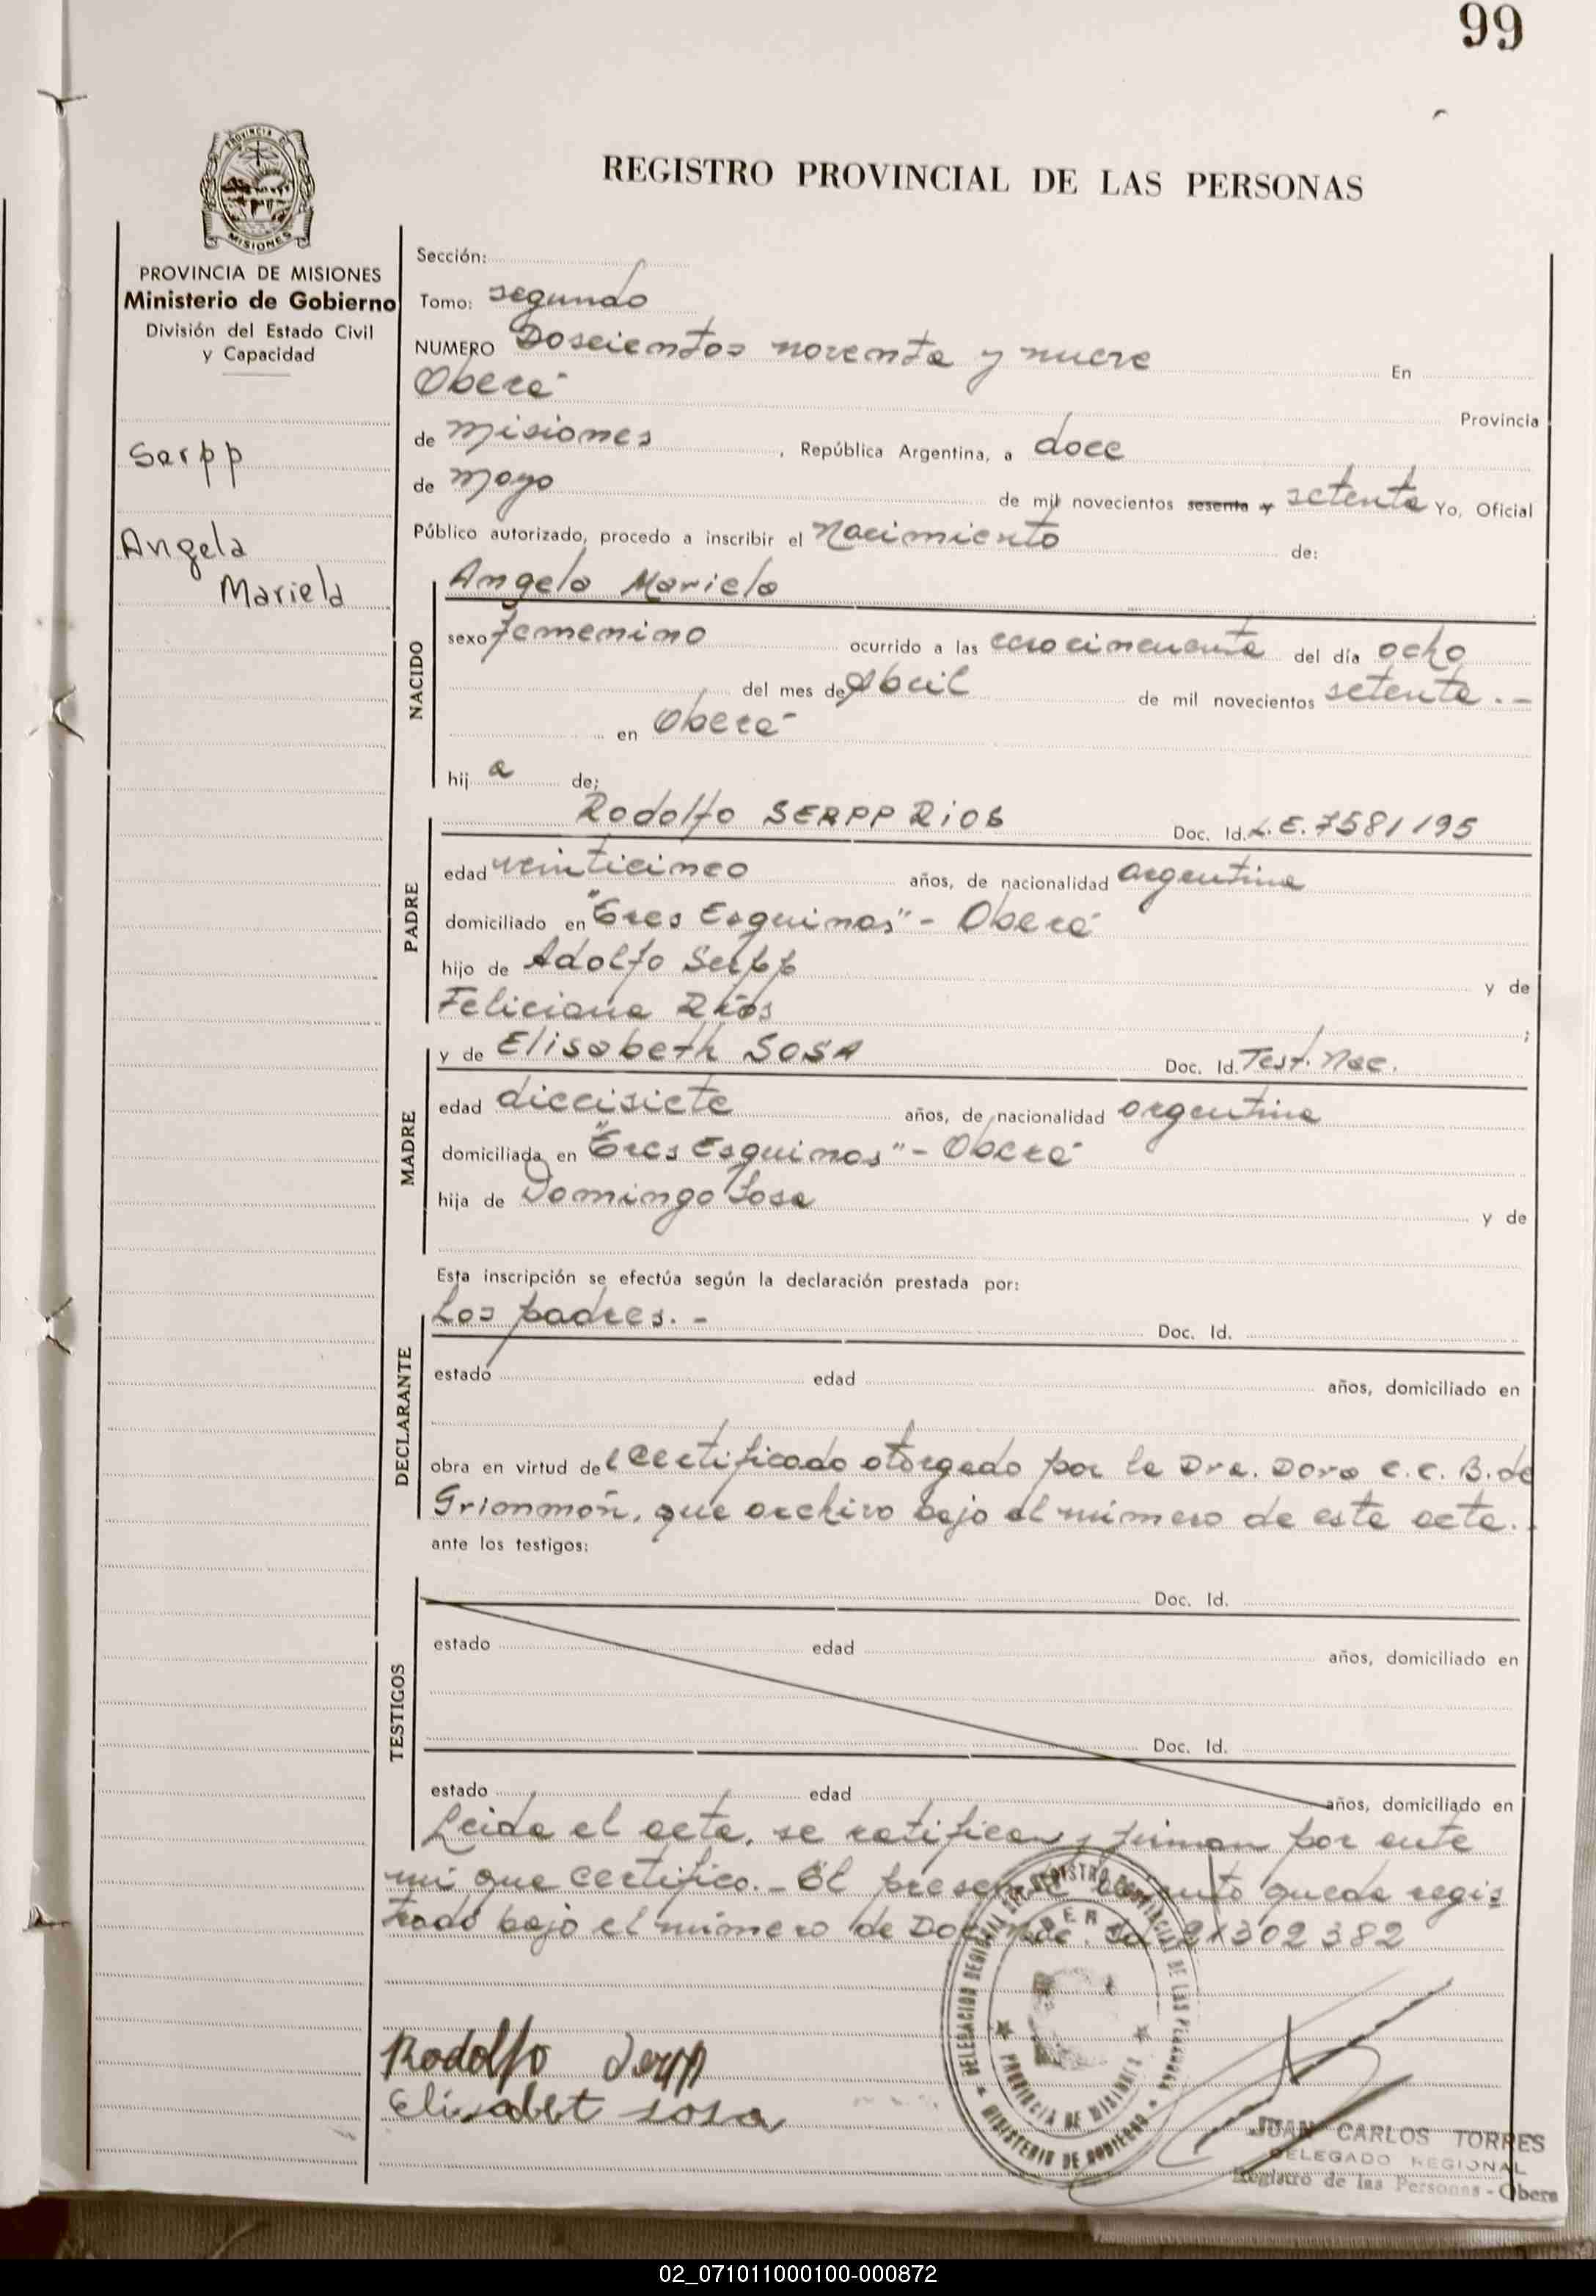 99
REGISTRO PROVINCIAL DE LAS PERSONAS
PROVINCIA DE MISIONES
Ministerio de Gobierno
División del Estado Civil
y Capacidad
Serpp
Angela
Mariela
Sección:
Tomo: segundo
NUMERO Doscientos noventa y nueve En
Oberá
Provincia
de Misiones, República Argentina, a doce
de Mayo de mil novecientos sesenta y setenta Yo, Oficial
Público autorizado, procedo a inscribir el Nacimiento de:
NACIDO
Angela Mariela
sexo femenino ocurrido a las cero cincuenta del día ocho
del mes de Abril de mil novecientos setenta.-
en Oberá
hij a de;
PADRE
Rodolfo SERPP RIOS Doc. Id. L.E. 7581195
edad veinticinco años, de nacionalidad argentina
domiciliado en "Tres Esquinas" - Oberá
hijo de Adolfo Serpp y de
Feliciana Ríos ;
MADRE
y de Elisabeth SOSA Doc. Id. Test. Nac.
edad diecisiete años, de nacionalidad argentina
domiciliada en "Tres Esquinas" - Oberá
hija de Domingo Sosa y de
Esta inscripción se efectúa según la declaración prestada por:
DECLARANTE
Los padres. - Doc. Id.
estado edad años, domiciliado en
obra en virtud de l certificado otorgado por la Dra. Dora C.C. B. de
que archivo bajo el número de este acta.
ante los testigos:
TESTIGOS
Doc. Id.
estado edad años, domiciliado en
Doc. Id.
estado edad años, domiciliado en
Leida el acta, se ratifican y firman por ante
mí que certifico.- El presente queda regis
trado bajo el número de 21302382
Rodolfo Serpp
Elisabet sosa
DELEGACION REGIONAL DEL REGISTRO PROVINCIAL DE LAS PERSONAS
PROVINCIA DE MISIONES
MINISTERIO DE GOBIERNO
JUAN CARLOS TORRES
DELEGADO REGIONAL
Registro de las Personas - Obera
02_071011000100-000872